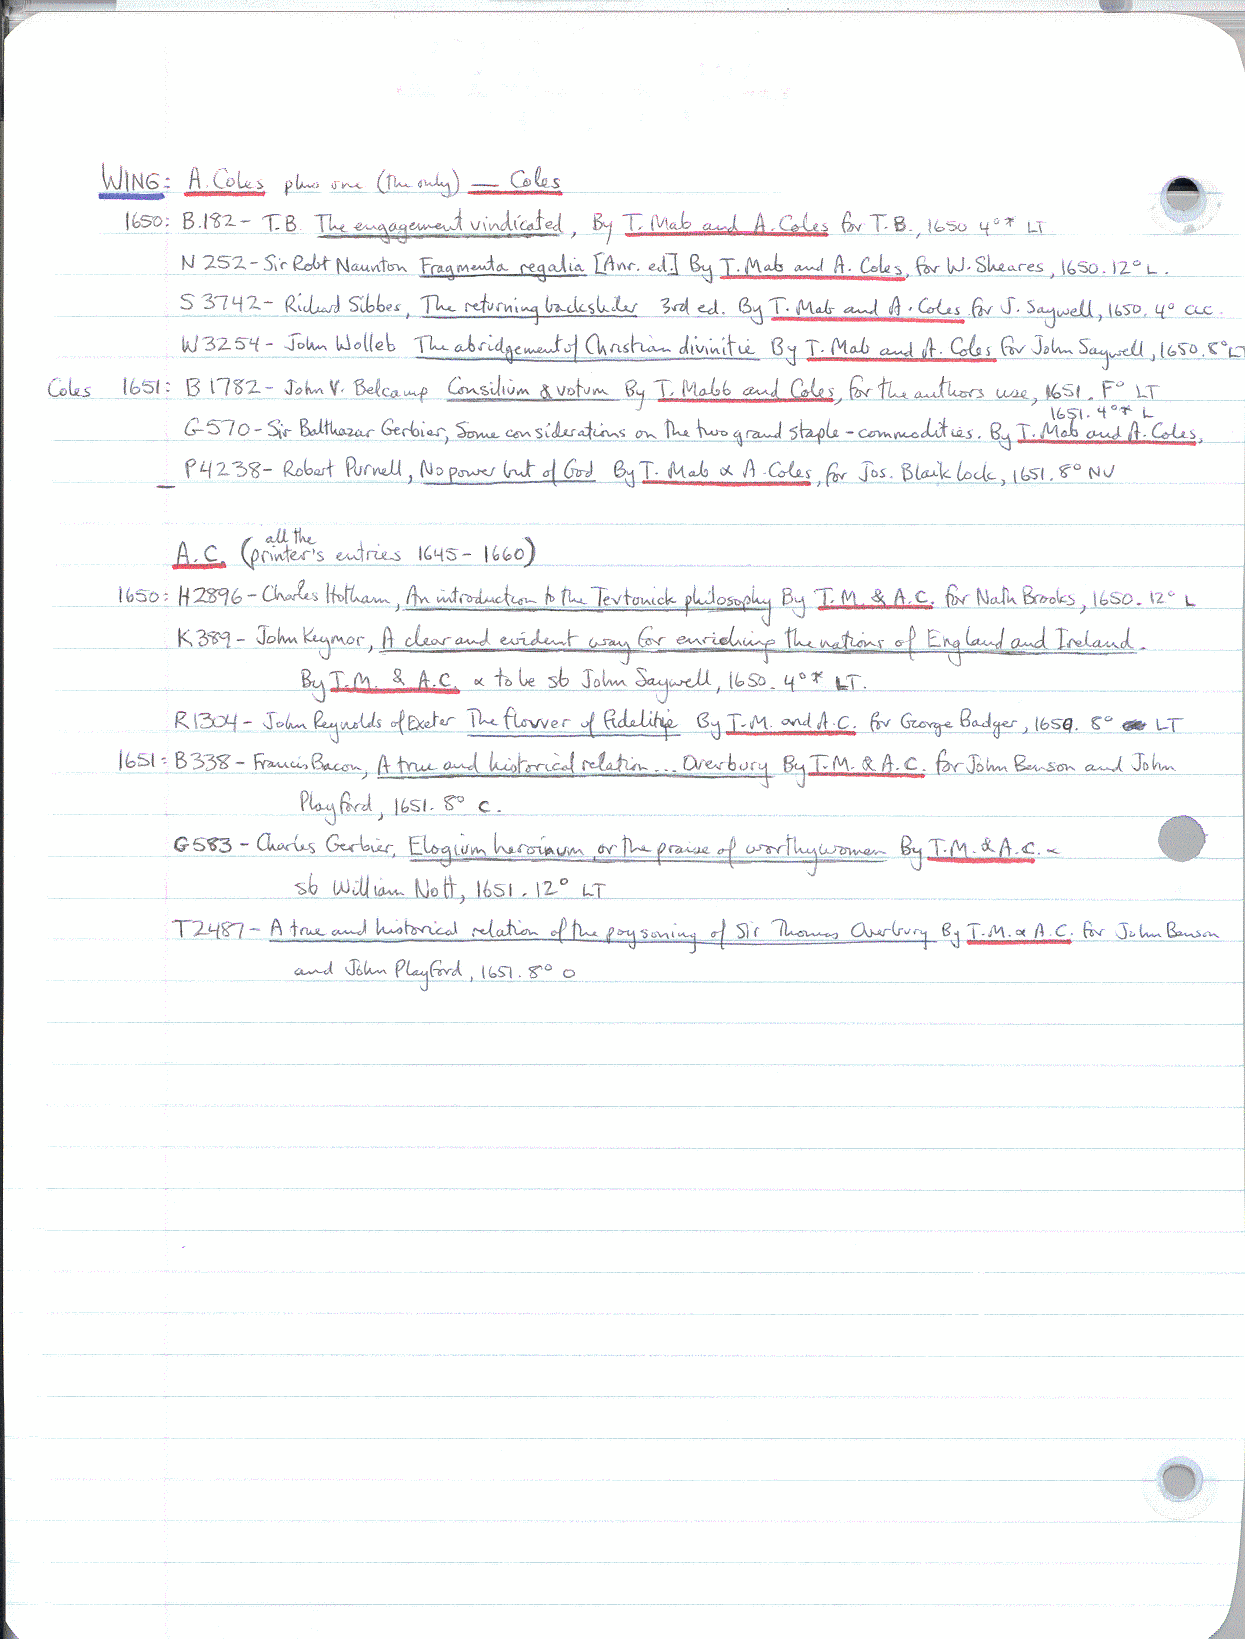 WING: A. Coles plus one (the only) — Coles
1650: B.182 - T.B. The engagement vindicated, By T. Mab and A. Coles for T.B., 1650 4°* LT
N 252 - Sir Robt Naunton Fragmenta regalia [Anr. ed.] By T. Mab and A. Coles, for W. Sheares, 1650. 12° L.
S 3742 - Richard Sibbes, The returning backslider 3rd ed. By T. Mab and A. Coles for J. Saywell, 1650. 4° CLC.
W3254 - John Wolleb The abridgement of Christian divinitie By T. Mab and A. Coles for John Saywell, 1650. 8° LT
Coles 1651: B 1782 - John V. Belcamp Consilium & votum By T. Mabb and Coles, for the authors use, 1651. F° LT
1651. 4°* L
G570 - Sir Balthazar Gerbier, Some considerations on the two grand staple-commodities. By T. Mab and A. Coles,
P4238 - Robert Purnell, No power but of God By T. Mab & A. Coles, for Jos. Blaik lock, 1651. 8° NU
all the
A.C. (printer's entries 1645-1660)
1650: H2896 - Charles Hotham, An introduction to the Tevtonick philosophy By T.M. & A.C. for Nath Brooks, 1650. 12° L
K389 - John Keymor, A clear and evident way for enriching the nations of England and Ireland.
By T.M. & A.C. & to be sb John Saywell, 1650. 4°* LT.
R1304 - John Reynolds of Exeter The flovver of fidelitie By T.M. and A.C. for George Badger, 1650. 8° LT
1651: B338 - Francis Bacon, A true and historical relation... Overbury By T.M. & A.C. for John Benson and John
Playford, 1651. 8° C.
G583 - Charles Gerbier, Elogium heroinum, or the praise of worthy women By T.M. & A.C. &
sb William Nott, 1651. 12° LT
T2487 - A true and historical relation of the poysoning of Sir Thomas Overbury By T.M. & A.C. for John Benson
and John Playford, 1651. 8° O